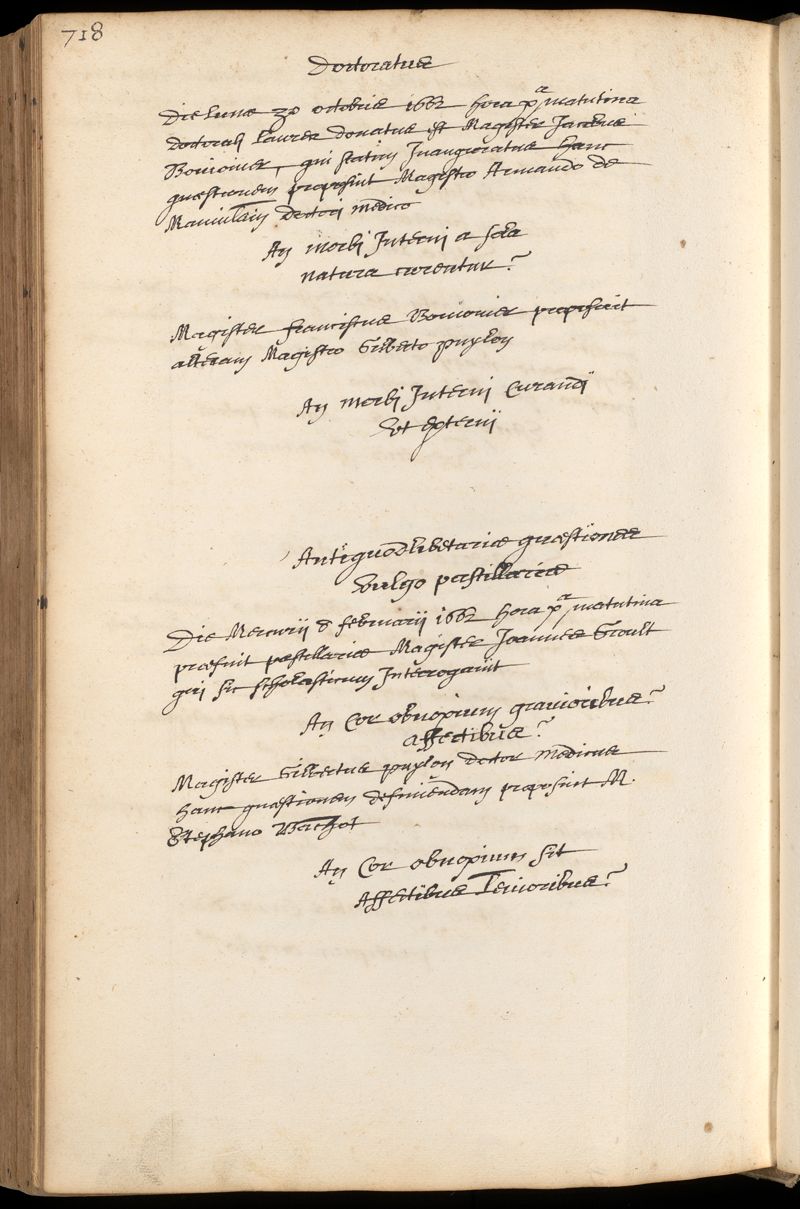 718
Doctoratus
Die lunæ 30 octobris 1662 hora pª matutina
doctorali laurea donatus est Magister Jacobus
Bouvoinet, qui statim Inauguratus hanc
quæstionem proposuit Magistro Armando de
Mauvilain doctori medico
An morbi Interni a sola
natura curentur?
Magister franciscus Bouvoinet proposuit
alteram Magistro Gilberto puylon
An morbi Interni Curandi
Vt Externi
Antiquodlibetariæ quæstiones
Vulgo pastillariæ
Die Mercurii 8 februarii 1662 hora pª matutina
præfuit pastillariæ Magister Joannes Groult
qui sic scholasticum Interrogavit
An Cor obnoxium gravioribus?
affectibus?
Magister Gilbertus puylon doctor medicus
hanc quæstionem definiendam proposuit M.
Stephano Bachot
An Cor obnoxium sit
Affectibus Levioribus?